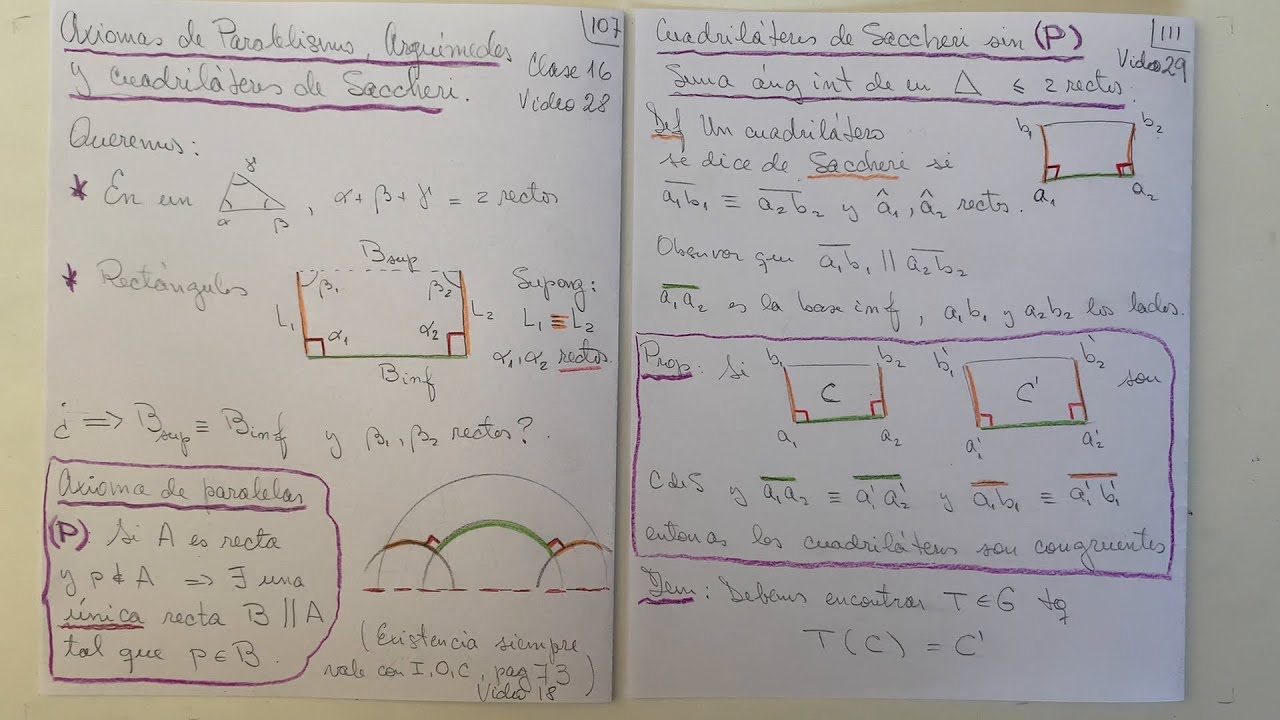 Axiomas de Paralelismo, Arquímedes
y cuadriláteros de Saccheri.
107
Clase 16
Video 28
Queremos:
* En un
γ
α
β
, α + β + γ = 2 rectos
* Rectángulos
B sup
β1
β2
L1
L2
α1
α2
B inf
Supong:
L1 ≡ L2
α1, α2 rectos.
¿ ⟹ B sup ≡ B inf y β1, β2 rectos?
Axioma de paralelas
(P) Si A es recta
y p ∉ A ⟹ ∃ una
única recta B || A
tal que p ∈ B.
(Existencia siempre
vale con I, O, C, pag 73)
Video 18
Cuadriláteros de Saccheri sin (P)
111
Video 29
Suma áng int de un △ ≤ 2 rectos.
Def Un cuadrilátero
se dice de Saccheri si
a1b1 ≡ a2b2 y â1, â2 rectos.
b1
b2
a1
a2
Observar que a1b1 || a2b2
a1a2 es la base inf, a1b1 y a2b2 los lados.
Prop: Si
b1
b2
C
a1
a2
b'1
b'2
C'
a'1
a'2
son
C de S y a1a2 ≡ a'1a'2 y a1b1 ≡ a'1b'1
entonces los cuadriláteros son congruentes
Dem: Debemos encontrar T ∈ G tq
T(C) = C'